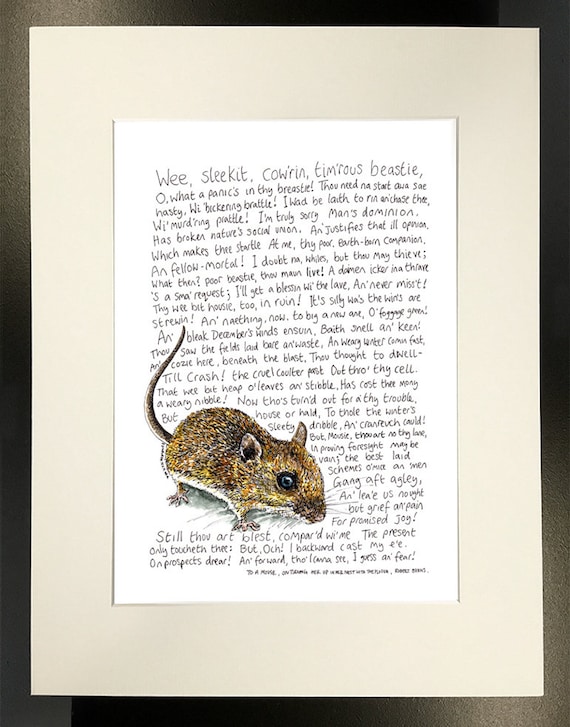 Wee, sleekit, cow'rin, tim'rous beastie,
O, what a panic's in thy breastie! Thou need na start awa sae
hasty, Wi' bickering brattle! I wad be laith to rin an' chase thee,
Wi' murd'ring prattle! I'm truly sorry Man's dominion,
Has broken nature's social union, An' justifies that ill opinion,
Which makes thee startle At me, thy poor, earth-born companion,
An fellow-mortal! I doubt na, whiles, but thou may thieve;
What then? poor beastie, thou maun live! A daimen icker in a thrave
'S a sma' request; I'll get a blessin wi' the lave, An' never miss't!
Thy wee bit housie, too, in ruin! It's silly wa's the win's are
strewin! An' naething, now, to big a new ane, O' foggage green!
An' bleak December's winds ensuin, Baith snell an' keen!
Thou saw the fields laid bare an' waste, An weary Winter comin fast,
An' cozie here, beneath the blast, Thou thought to dwell-
Till Crash! the cruel coulter past Out thro' thy cell.
That wee bit heap o' leaves an' stibble, Has cost thee mony
a weary nibble! Now tho's turn'd out for a' thy trouble,
But house or hald, To thole the winter's
sleety dribble, An' cranreuch cauld!
But, Mousie, thou art no thy lane,
In proving foresight may be
vain; the best laid
schemes o' mice an men
Gang aft agley,
An' lea'e us nought
but grief an' pain
For promised joy!
Still thou art blest, compar'd wi' me The present
only toucheth thee: But, Och! I backward cast my e'e.
On prospects drear! An' forward, tho' I canna see, I guess an' fear!
TO A MOUSE, ON TURNING HER UP IN HER NEST WITH THE PLOUGH, ROBERT BURNS.